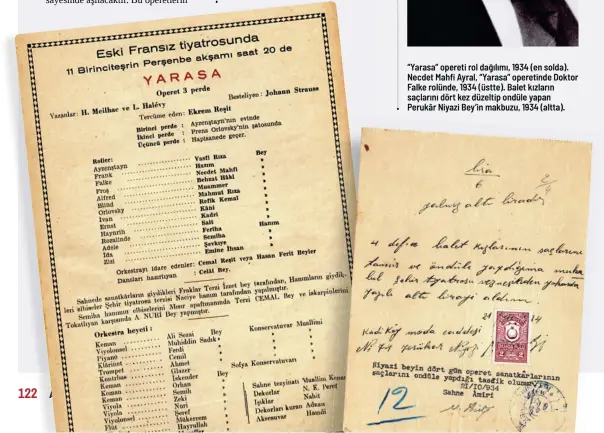 sayesinde aşılacaktır. Bu operetlerin
Eski Fransız tiyatrosunda
11 Birinciteşrin Perşenbe akşamı saat 20 de
YARASA
Operet 3 perde
Yazanlar: H. Meilhac ve L. Halévy
Besteliyen: Johann Strauss
Tercüme eden: Ekrem Reşit
Birinci perde : Ayzenştayn'nın evinde
İkinci perde : Prens Orlovsky'nin şatosunda
Üçüncü perde : Hapisanede geçer.
Roller: Bey
Ayzenştayn Vasfi Rıza
Frank Hazım
Falke Necdet Mahfi
Froş Behzat Hâki
Alfred Muammer
Blind Mahmut Rıza
Orlovsky Refik Kemal
İvan Kâni
Ernst Kadri
Haynrih Sait
Rozalinde Feriha Hanım
Adele Semiha
İda Şevkiye
Zizi Emine İhsan
Orkestrayı idare edenler: Cemal Reşit veya Hasan Ferit Beyler
Dansları hazırlıyan : Celâl Bey.
Sahnede sanatkârların giydikleri Fraklar Terzi İzzet bey tarafından, Hanımların giydik-
leri elbiseler Şehir tiyatrosu terzisi Naciye hanım tarafından yapılmıştır.
Semiha hanımın elbiselerini Mısır apartımanında Terzi CEMAL Bey ve iskarpinlerini
Tokatlıyan karşısında A NURİ Bey yapmıştır.
Orkestra heyeti :
Keman Ali Sezai Bey Konservatuvar Muallimi
Viyolonsel Muhiddin Sadık
Piyano Ferdi
Klârinet Cemil
Trompet Ahmet Sofya Konservatuvarı
Kontrbas Glazer
Keman İskender Bey
Keman Orhan
Keman Semih
Viyola Zeki
Viyola Nuri
Viyolonsel Seref
Flüt Mükerrem
Hayrullah
Sahne tezyinatı Muallim Kemal
Dekorlar N. K. Peret
Işıklar Nahit
Dekorları kuran Adnan
Aksesuvar Hamdi
122
“Yarasa” opereti rol dağılımı, 1934 (en solda).
Necdet Mahfi Ayral, “Yarasa” operetinde Doktor
Falke rolünde, 1934 (üstte). Balet kızların
saçlarını dört kez düzeltip ondüle yapan
Perukâr Niyazi Bey’in makbuzu, 1934 (altta).
lira
6
yalnız altı liradır
4 defa balet kızlarının saçlarını
ve ondüle yaptığıma muka
bil şehir tiyatrosu veznesinden yukarıda
yazılı altı lirayı aldım.
21 34
Kadıköy moda caddesi
2
Niyazi beyin dört gün operet sanatkârlarının
saçlarını ondüle yapdığı tasdik olunur.
21/10/934
Sahne Âmiri
12